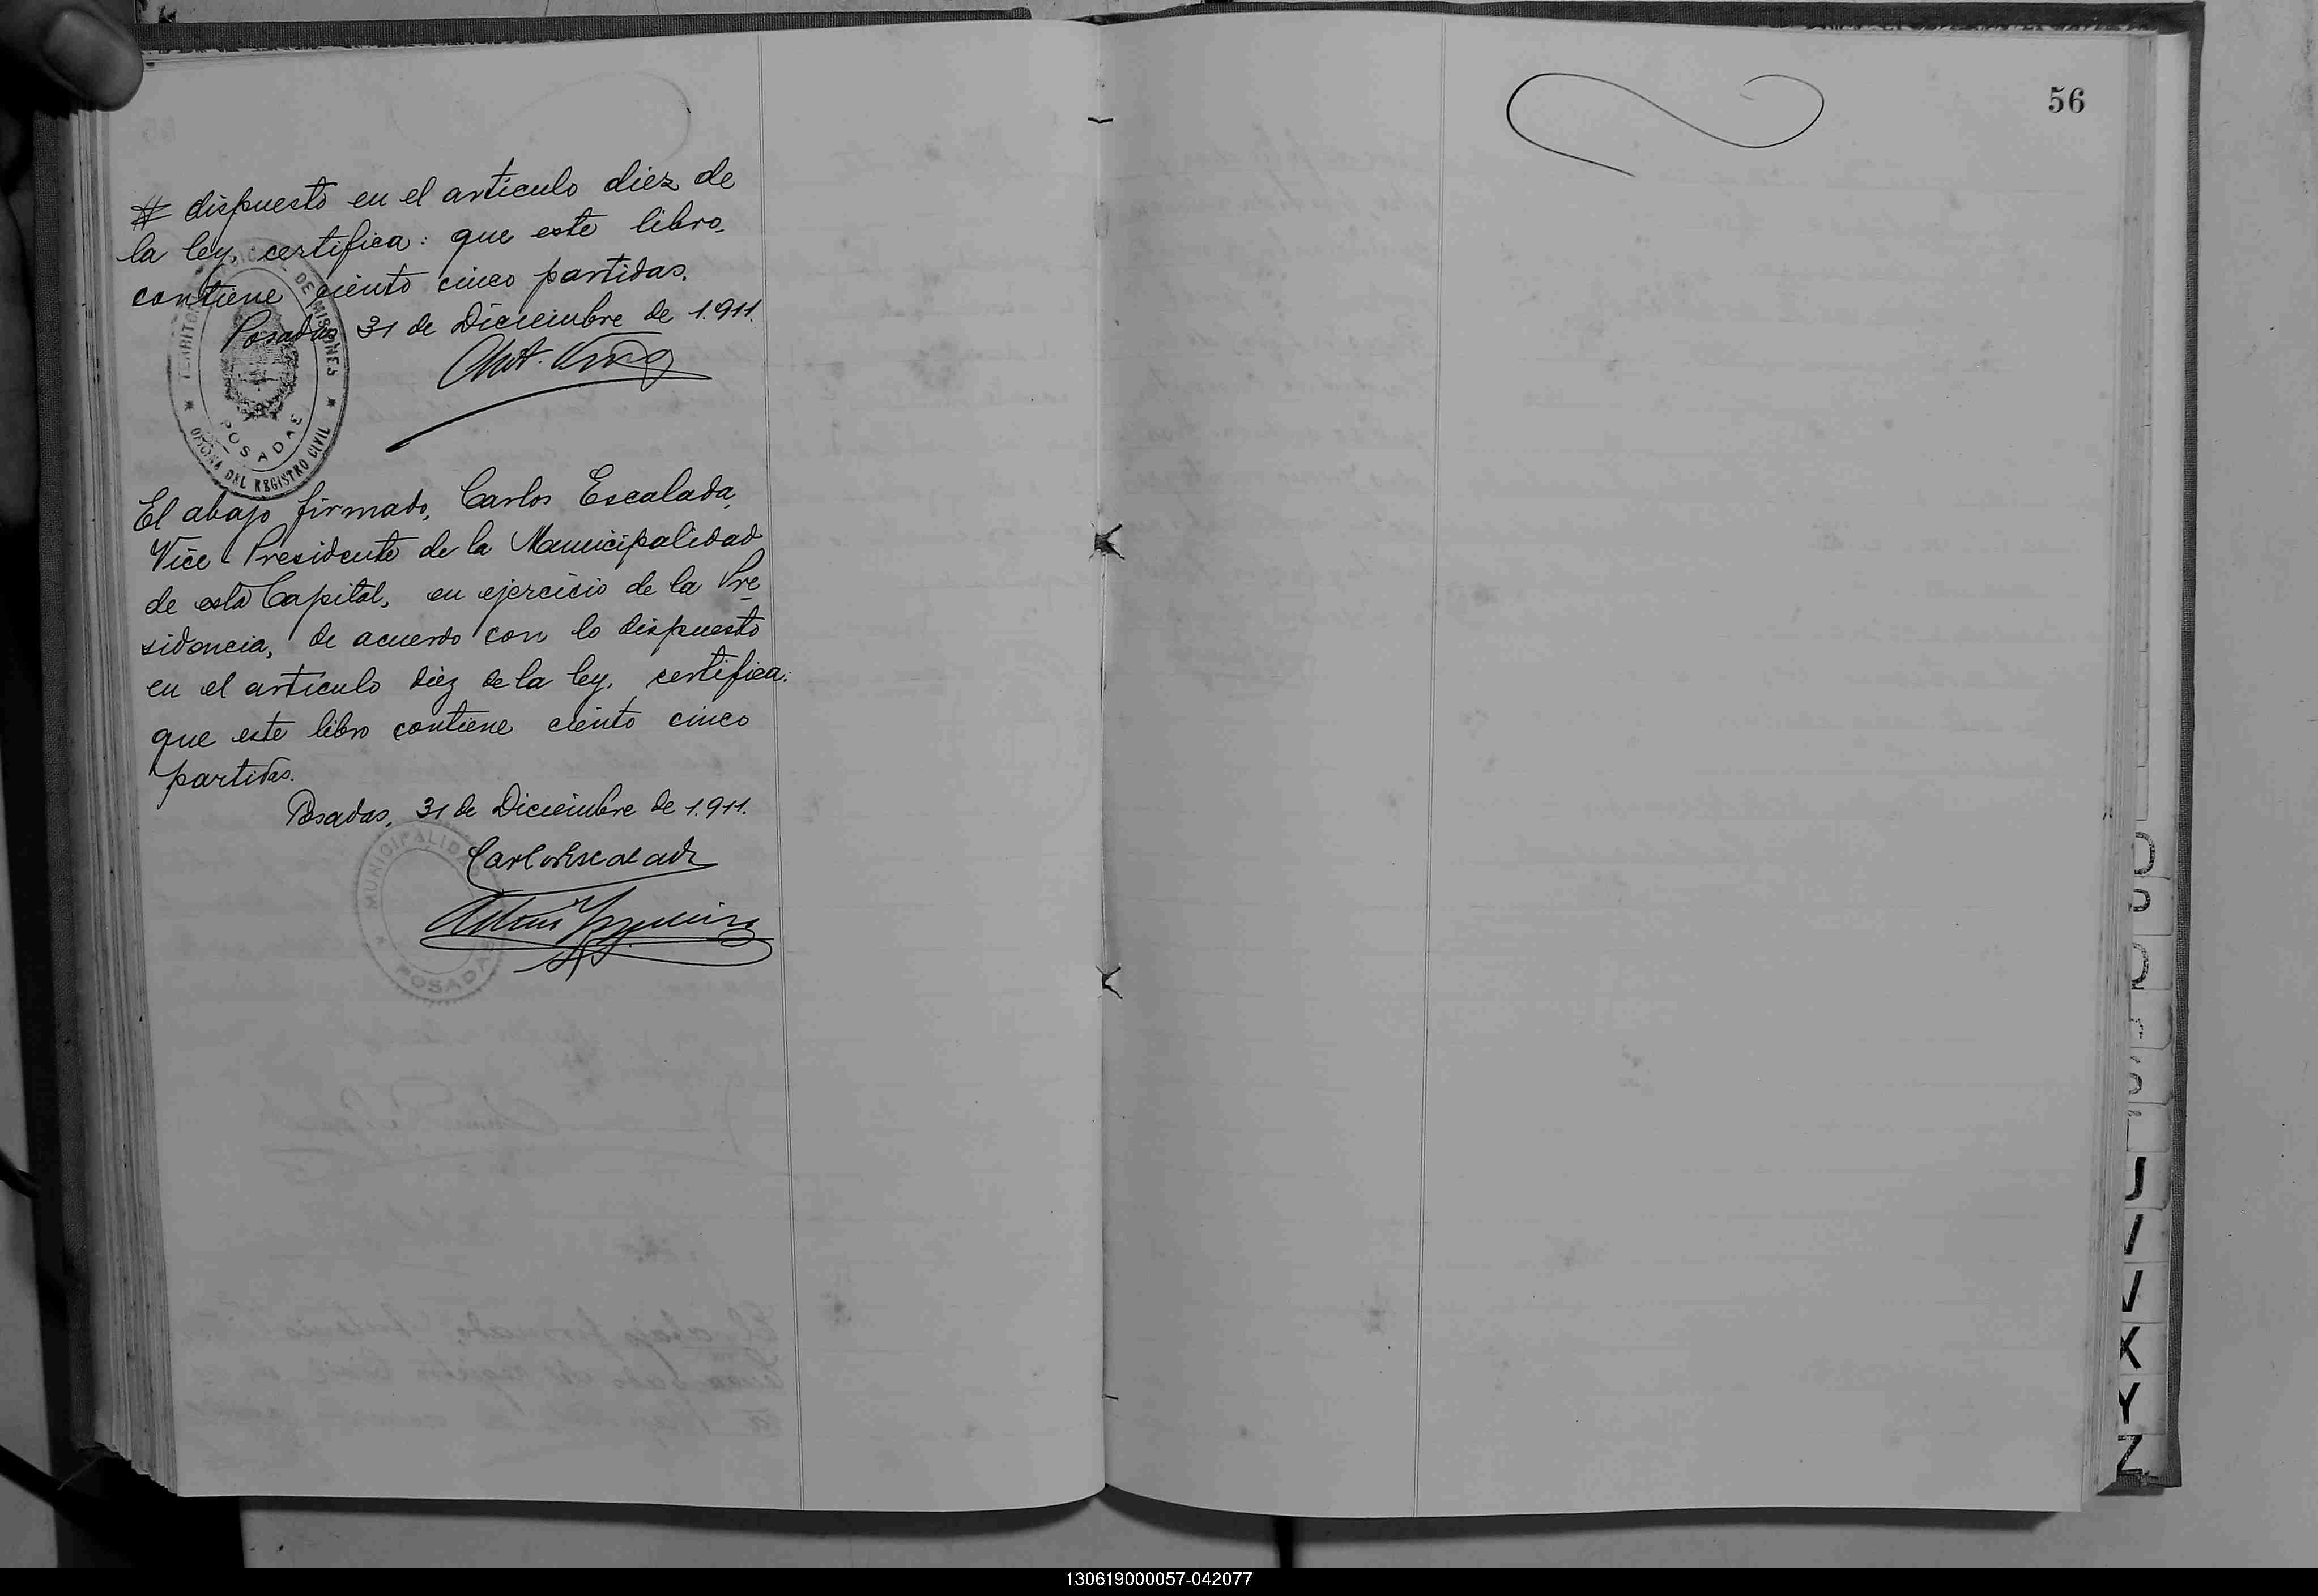 # dispuesto en el artículo diez de
la ley, certifica: que este libro
contiene ciento cinco partidas.
Posadas 31 de Diciembre de 1.911.
TERRITORIO NACIONAL DE MISIONES
POSADAS
OFICINA DEL REGISTRO CIVIL
El abajo firmado, Carlos Escalada,
Vice Presidente de la Municipalidad
de esta Capital, en ejercicio de la Pre
sidencia, de acuerdo con lo dispuesto
en el artículo diez de la ley, certifica:
que este libro contiene ciento cinco
partidas.
Posadas, 31 de Diciembre de 1.911.
Carlos Escalada
MUNICIPALIDAD
POSADAS
56
U
V
X
Y
Z
130619000057-042077